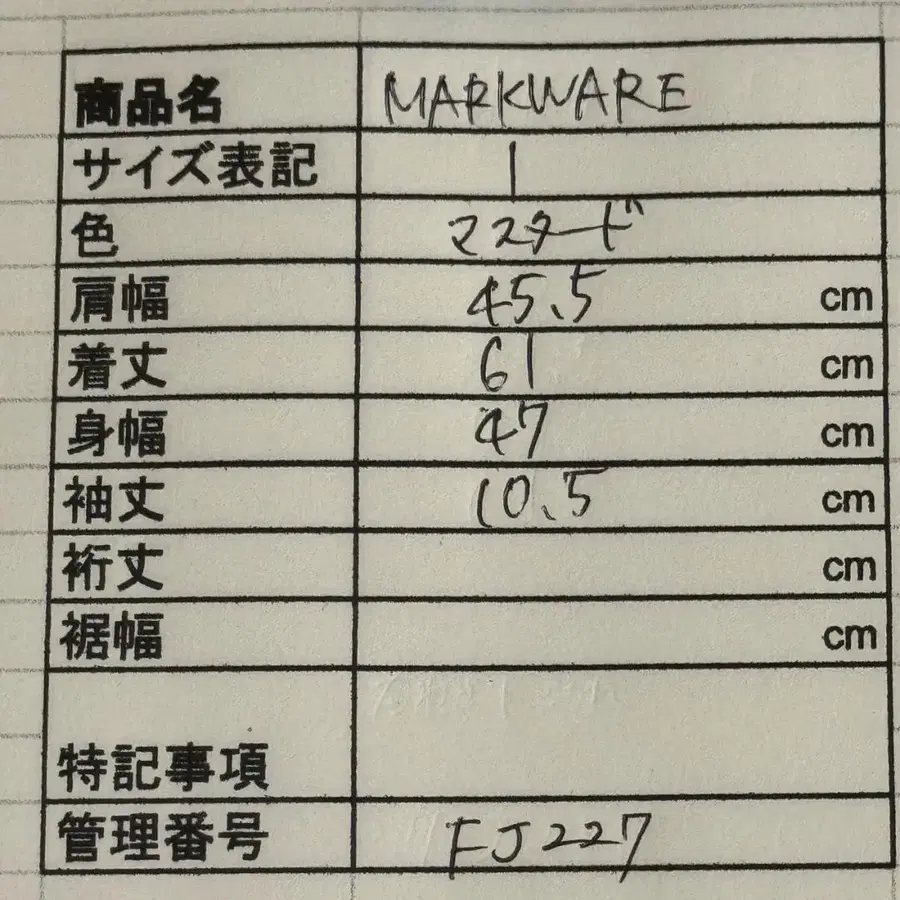 商品名 MARKWARE
サイズ表記 1
色 マスタード
肩幅 45.5 cm
着丈 61 cm
身幅 47 cm
袖丈 10.5 cm
裄丈 cm
裾幅 cm
特記事項
管理番号 FJ227